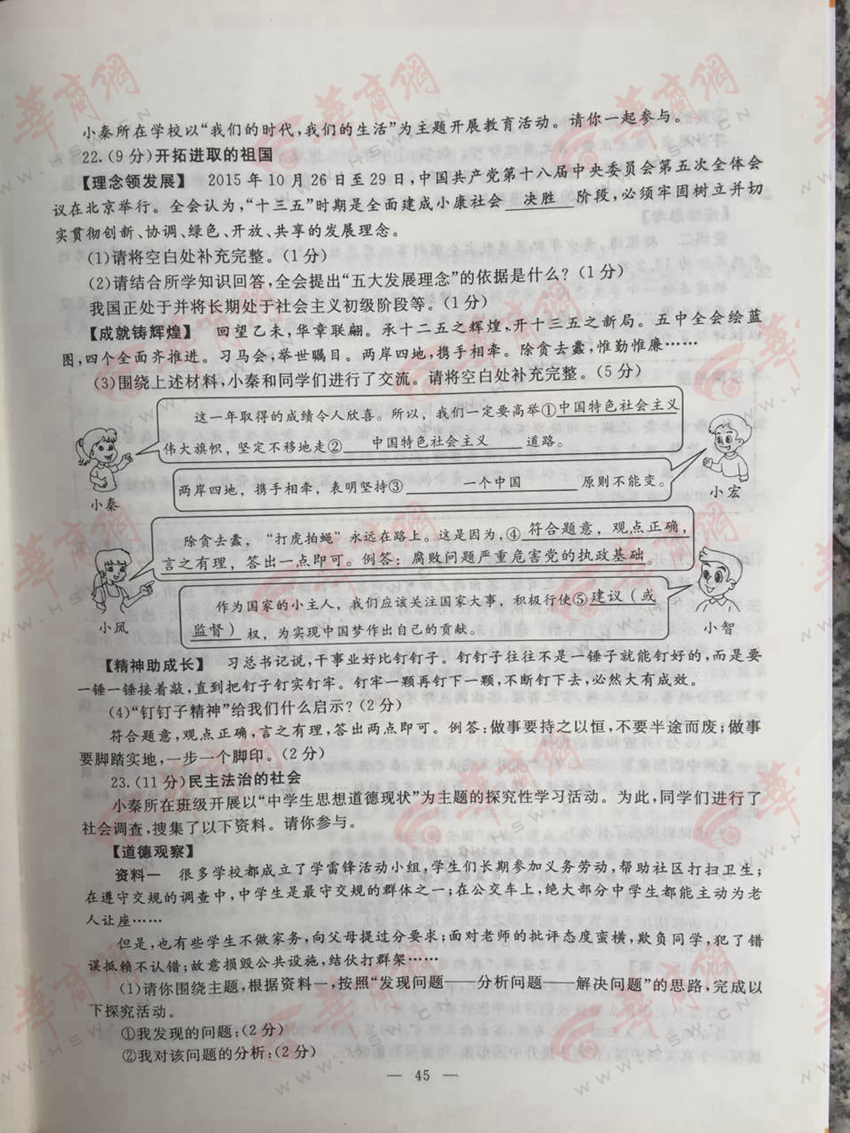 小秦所在学校以“我们的时代,我们的生活”为主题开展教育活动。请你一起参与。
22.(9分)开拓进取的祖国
【理念领发展】 2015年10月26日至29日,中国共产党第十八届中央委员会第五次全体会
议在北京举行。全会认为,“十三五”时期是全面建成小康社会 决胜 阶段,必须牢固树立并切
实贯彻创新、协调、绿色、开放、共享的发展理念。
(1)请将空白处补充完整。(1分)
(2)请结合所学知识回答,全会提出“五大发展理念”的依据是什么?(1分)
我国正处于并将长期处于社会主义初级阶段等。(1分)
【成就铸辉煌】 回望乙未,华章联翩。承十二五之辉煌,开十三五之新局。五中全会绘蓝
图,四个全面齐推进。习马会,举世瞩目。两岸四地,携手相牵。除贪去蠹,惟勤惟廉……
(3)围绕上述材料,小秦和同学们进行了交流。请将空白处补充完整。(5分)
这一年取得的成绩令人欣喜。所以,我们一定要高举①中国特色社会主义
伟大旗帜,坚定不移地走② 中国特色社会主义 道路。
小秦
两岸四地,携手相牵,表明坚持③ 一个中国 原则不能变。
小宏
除贪去蠹,“打虎拍蝇”永远在路上。这是因为,④ 符合题意,观点正确,
言之有理,答出一点即可。例答:腐败问题严重危害党的执政基础。
小凤
作为国家的小主人,我们应该关注国家大事,积极行使⑤建议(或
监督) 权,为实现中国梦作出自己的贡献。
小智
【精神助成长】 习总书记说,干事业好比钉钉子。钉钉子往往不是一锤子就能钉好的,而是要
一锤一锤接着敲,直到把钉子钉实钉牢。钉牢一颗再钉下一颗,不断钉下去,必然大有成效。
(4)“钉钉子精神”给我们什么启示?(2分)
符合题意,观点正确,言之有理,答出两点即可。例答:做事要持之以恒,不要半途而废;做事
要脚踏实地,一步一个脚印。(2分)
23.(11分)民主法治的社会
小秦所在班级开展以“中学生思想道德现状”为主题的探究性学习活动。为此,同学们进行了
社会调查,搜集了以下资料。请你参与。
【道德观察】
资料一 很多学校都成立了学雷锋活动小组,学生们长期参加义务劳动,帮助社区打扫卫生;
在遵守交规的调查中,中学生是最守交规的群体之一;在公交车上,绝大部分中学生都能主动为老
人让座……
但是,也有些学生不做家务,向父母提过分要求;面对老师的批评态度蛮横,欺负同学,犯了错
误抵赖不认错;故意损毁公共设施,结伙打群架……
(1)请你围绕主题,根据资料一,按照“发现问题——分析问题——解决问题”的思路,完成以
下探究活动。
①我发现的问题:(2分)
②我对该问题的分析:(2分)
— 45 —
華商網
WWW.HSW.CN